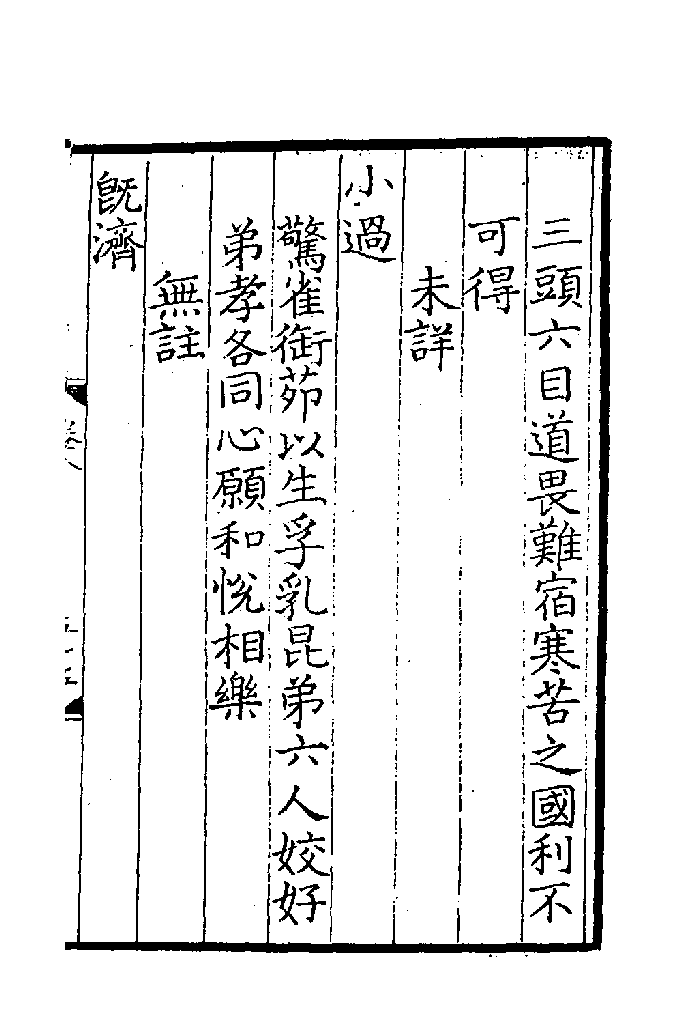 三頭六目道畏難宿寒苦之國利不
可得
未詳
小過
驚雀銜茆以生孚乳昆弟六人姣好
弟孝各同心願和悅相樂
無註
旣濟